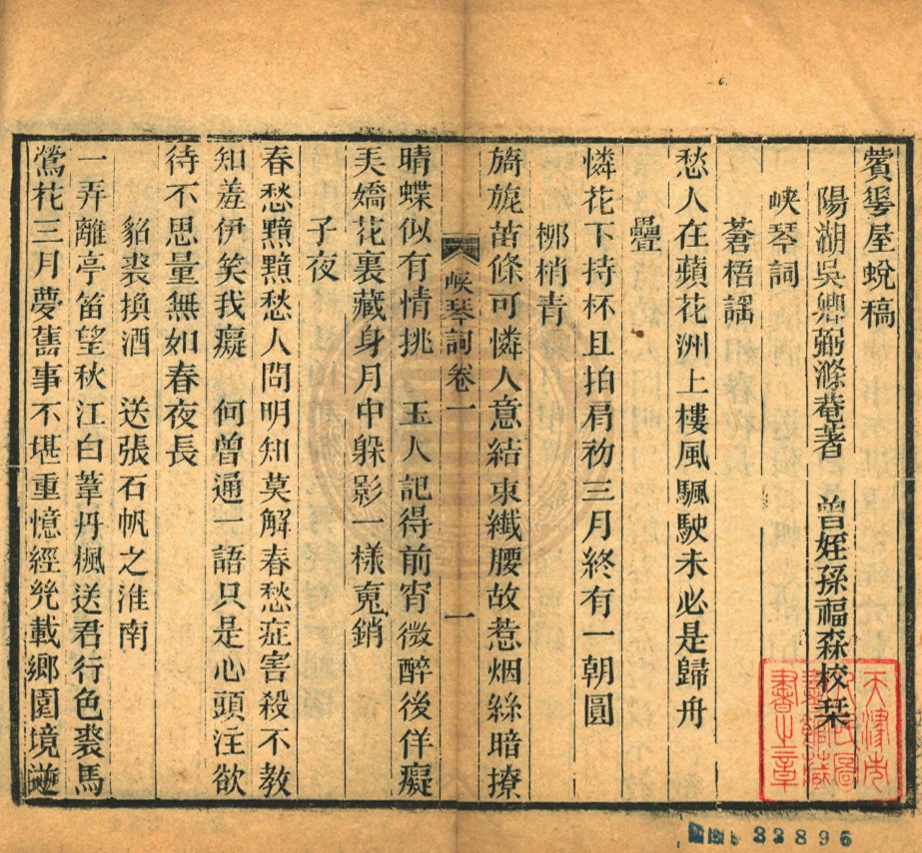 薲㝵屋蛻稿
陽湖吳卿弼滌菴著 曾姪孫福森校栞
峽琴詞
蒼梧謡
愁人在蘋花洲上樓風颿駛未必是歸舟
疊
憐花下持杯且拍肩初三月終有一朝圓
桺梢青
旖旎苖條可憐人意結束纖腰故惹烟絲暗撩
峽琴詞卷一 一
晴蝶似有情挑 玉人記得前宵微醉後佯癡
美嬌花裏藏身月中躲影一樣䰟銷
子夜
春愁黯黯愁人問明知莫解春愁症害殺不教
知羞伊笑我癡 何曾通一語只是心頭注欲
待不思量無如春夜長
貂裘換酒 送張石帆之淮南
一弄離亭笛望秋江白葦丹楓送君行色裘馬
鶯花三月夢舊事不堪重憶經㡬載鄉園境遊
天津市
人民圖
書館藏
書之章
32896